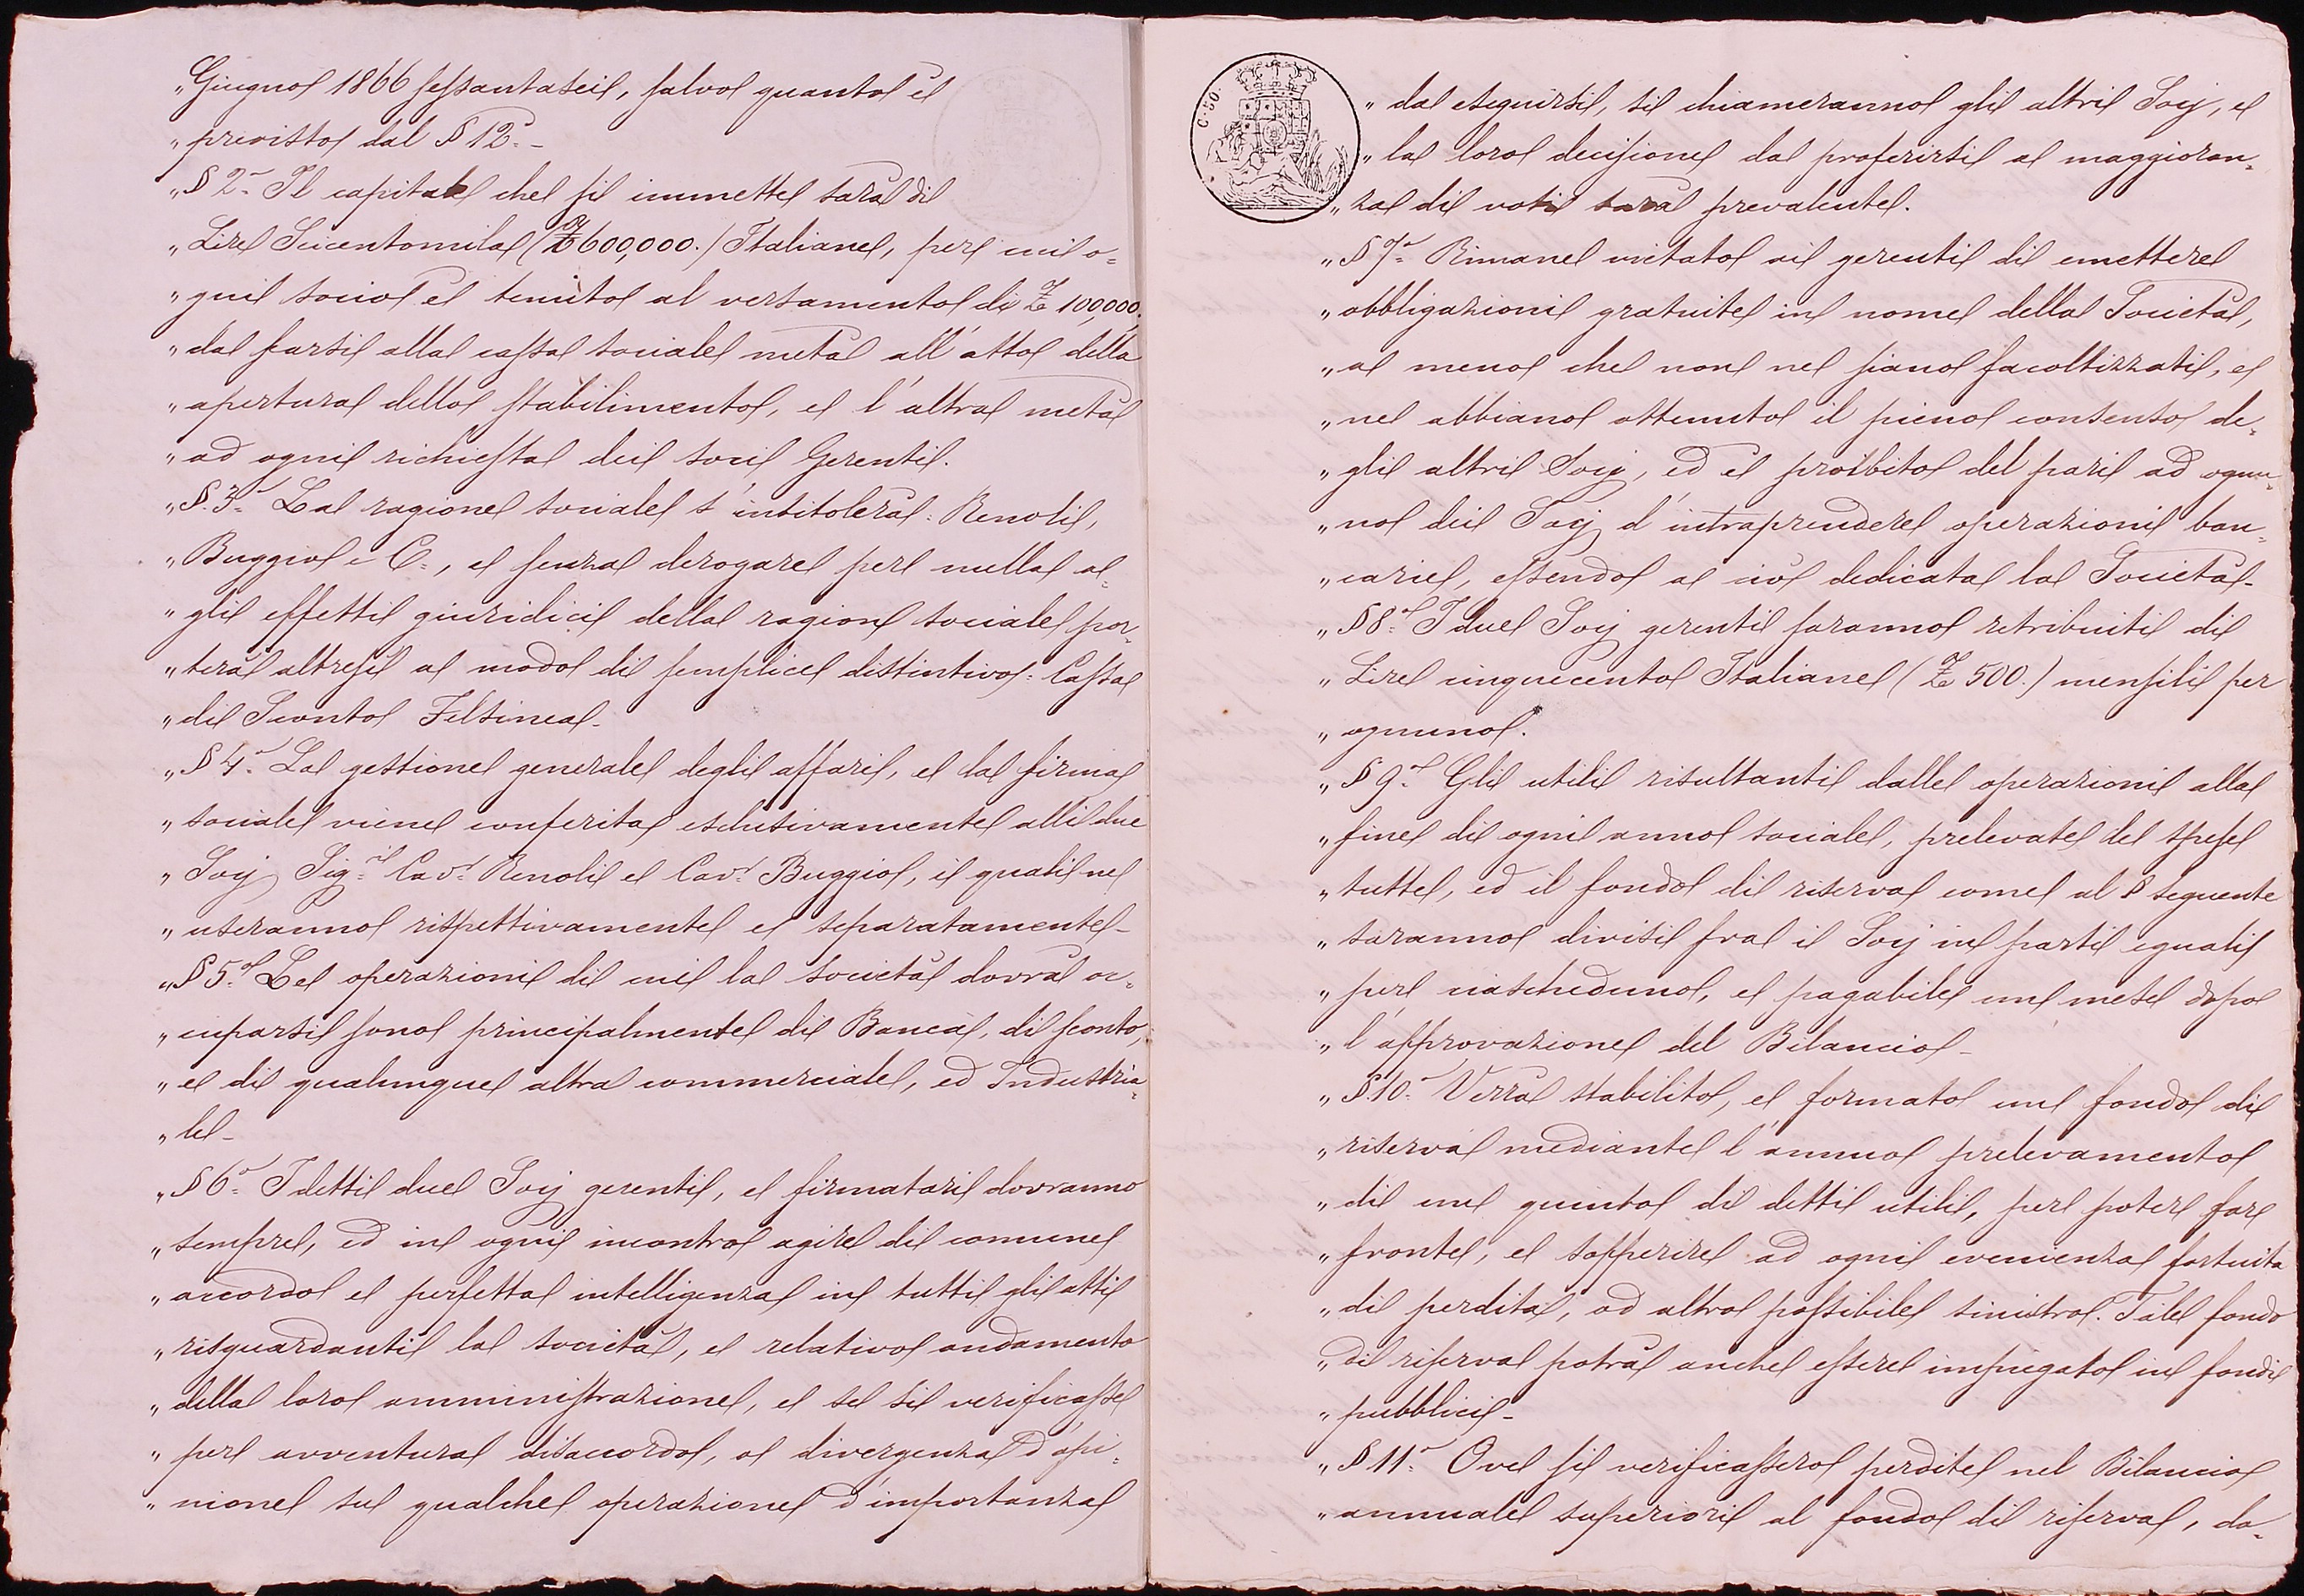 „Giugno 1866 sessantasei, salvo quanto è
„previsto dal § 12.-
„§ 2.° Il capitale che si immette sarà di
„Lire Seicentomila (£ 600,000.) Italiane, per cui o=
„gni socio è tenuto al versamento di £ 100,000.
„da farsi alla cassa sociale metà all'atto della
„apertura dello stabilimento, e l'altra metà
„ad ogni richiesta dei socii Gerenti.
„§. 3.° La ragione sociale s'intitolerà: Renoli,
„Buggio e C.=, e senza derogare per nulla a=
„gli effetti giuridici della ragion sociale por=
„terà altresì a modo di semplice distintivo: Cassa
„di Sconto Felsinea-
„§ 4.° La gestione generale degli affari, e la firma
„sociale viene conferita esclusivamente alli due
„Socj Sig.ri Cav.r Renoli e Cav.r Buggio, i quali ne
„useranno rispettivamente e separatamente-
„§ 5.° Le operazioni di cui la società dovrà oc=
„cuparsi sono principalmente di Banca, di sconto,
„e di qualunque altra commerciale, ed Industria=
„le-
„§ 6.° I detti due Socj gerenti, e firmatari dovranno
„sempre, ed in ogni incontro agire di comune
„accordo e perfetta intelligenza in tutti gli atti
„risguardanti la società, e relativo andamento
„della loro amministrazione, e se si verificasse
„per avventura disaccordo, o divergenza d'opi=
„nione su qualche operazione d'importanza
C. 50.
„da eseguirsi, si chiameranno gli altri Socj, e
„la loro decisione da proferirsi a maggioran=
„za di voti sarà prevalente.
„§ 7.° Rimane vietato ai gerenti di emettere
„obbligazioni gratuite in nome della Società,
„a meno che non ne siano facoltizzati, e
„ne abbiano ottenuto il pieno consenso de=
„gli altri Socj, ed è proibito del pari ad ognu=
„no dei Socj d'intraprendere operazioni ban=
„carie, essendo a ciò dedicata la Società-
„§ 8.° I due Socj gerenti saranno retribuiti di
„Lire cinquecento Italiane (£ 500.) mensili per
„ognuno.
„§ 9.° Gli utili risultanti dalle operazioni alla
„fine di ogni anno sociale, prelevate le spese
„tutte, ed il fondo di riserva come al § seguente
„saranno divisi fra i Socj in parti eguali
„per ciascheduno, e pagabile un mese dopo
„l'approvazione del Bilancio-
„§. 10.° Verrà stabilito, e formato un fondo di
„riserva mediante l'annuo prelevamento
„di un quinto di detti utili, per poter far
„fronte, e sopperire ad ogni evenienza fortuita
„di perdita, od altro possibile sinistro. Tale fondo
„di riserva potrà anche essere impiegato in fondi
„pubblici-
„§ 11.° Ove si verificassero perdite nel Bilancio
„annuale superiori al fondo di riserva, do=